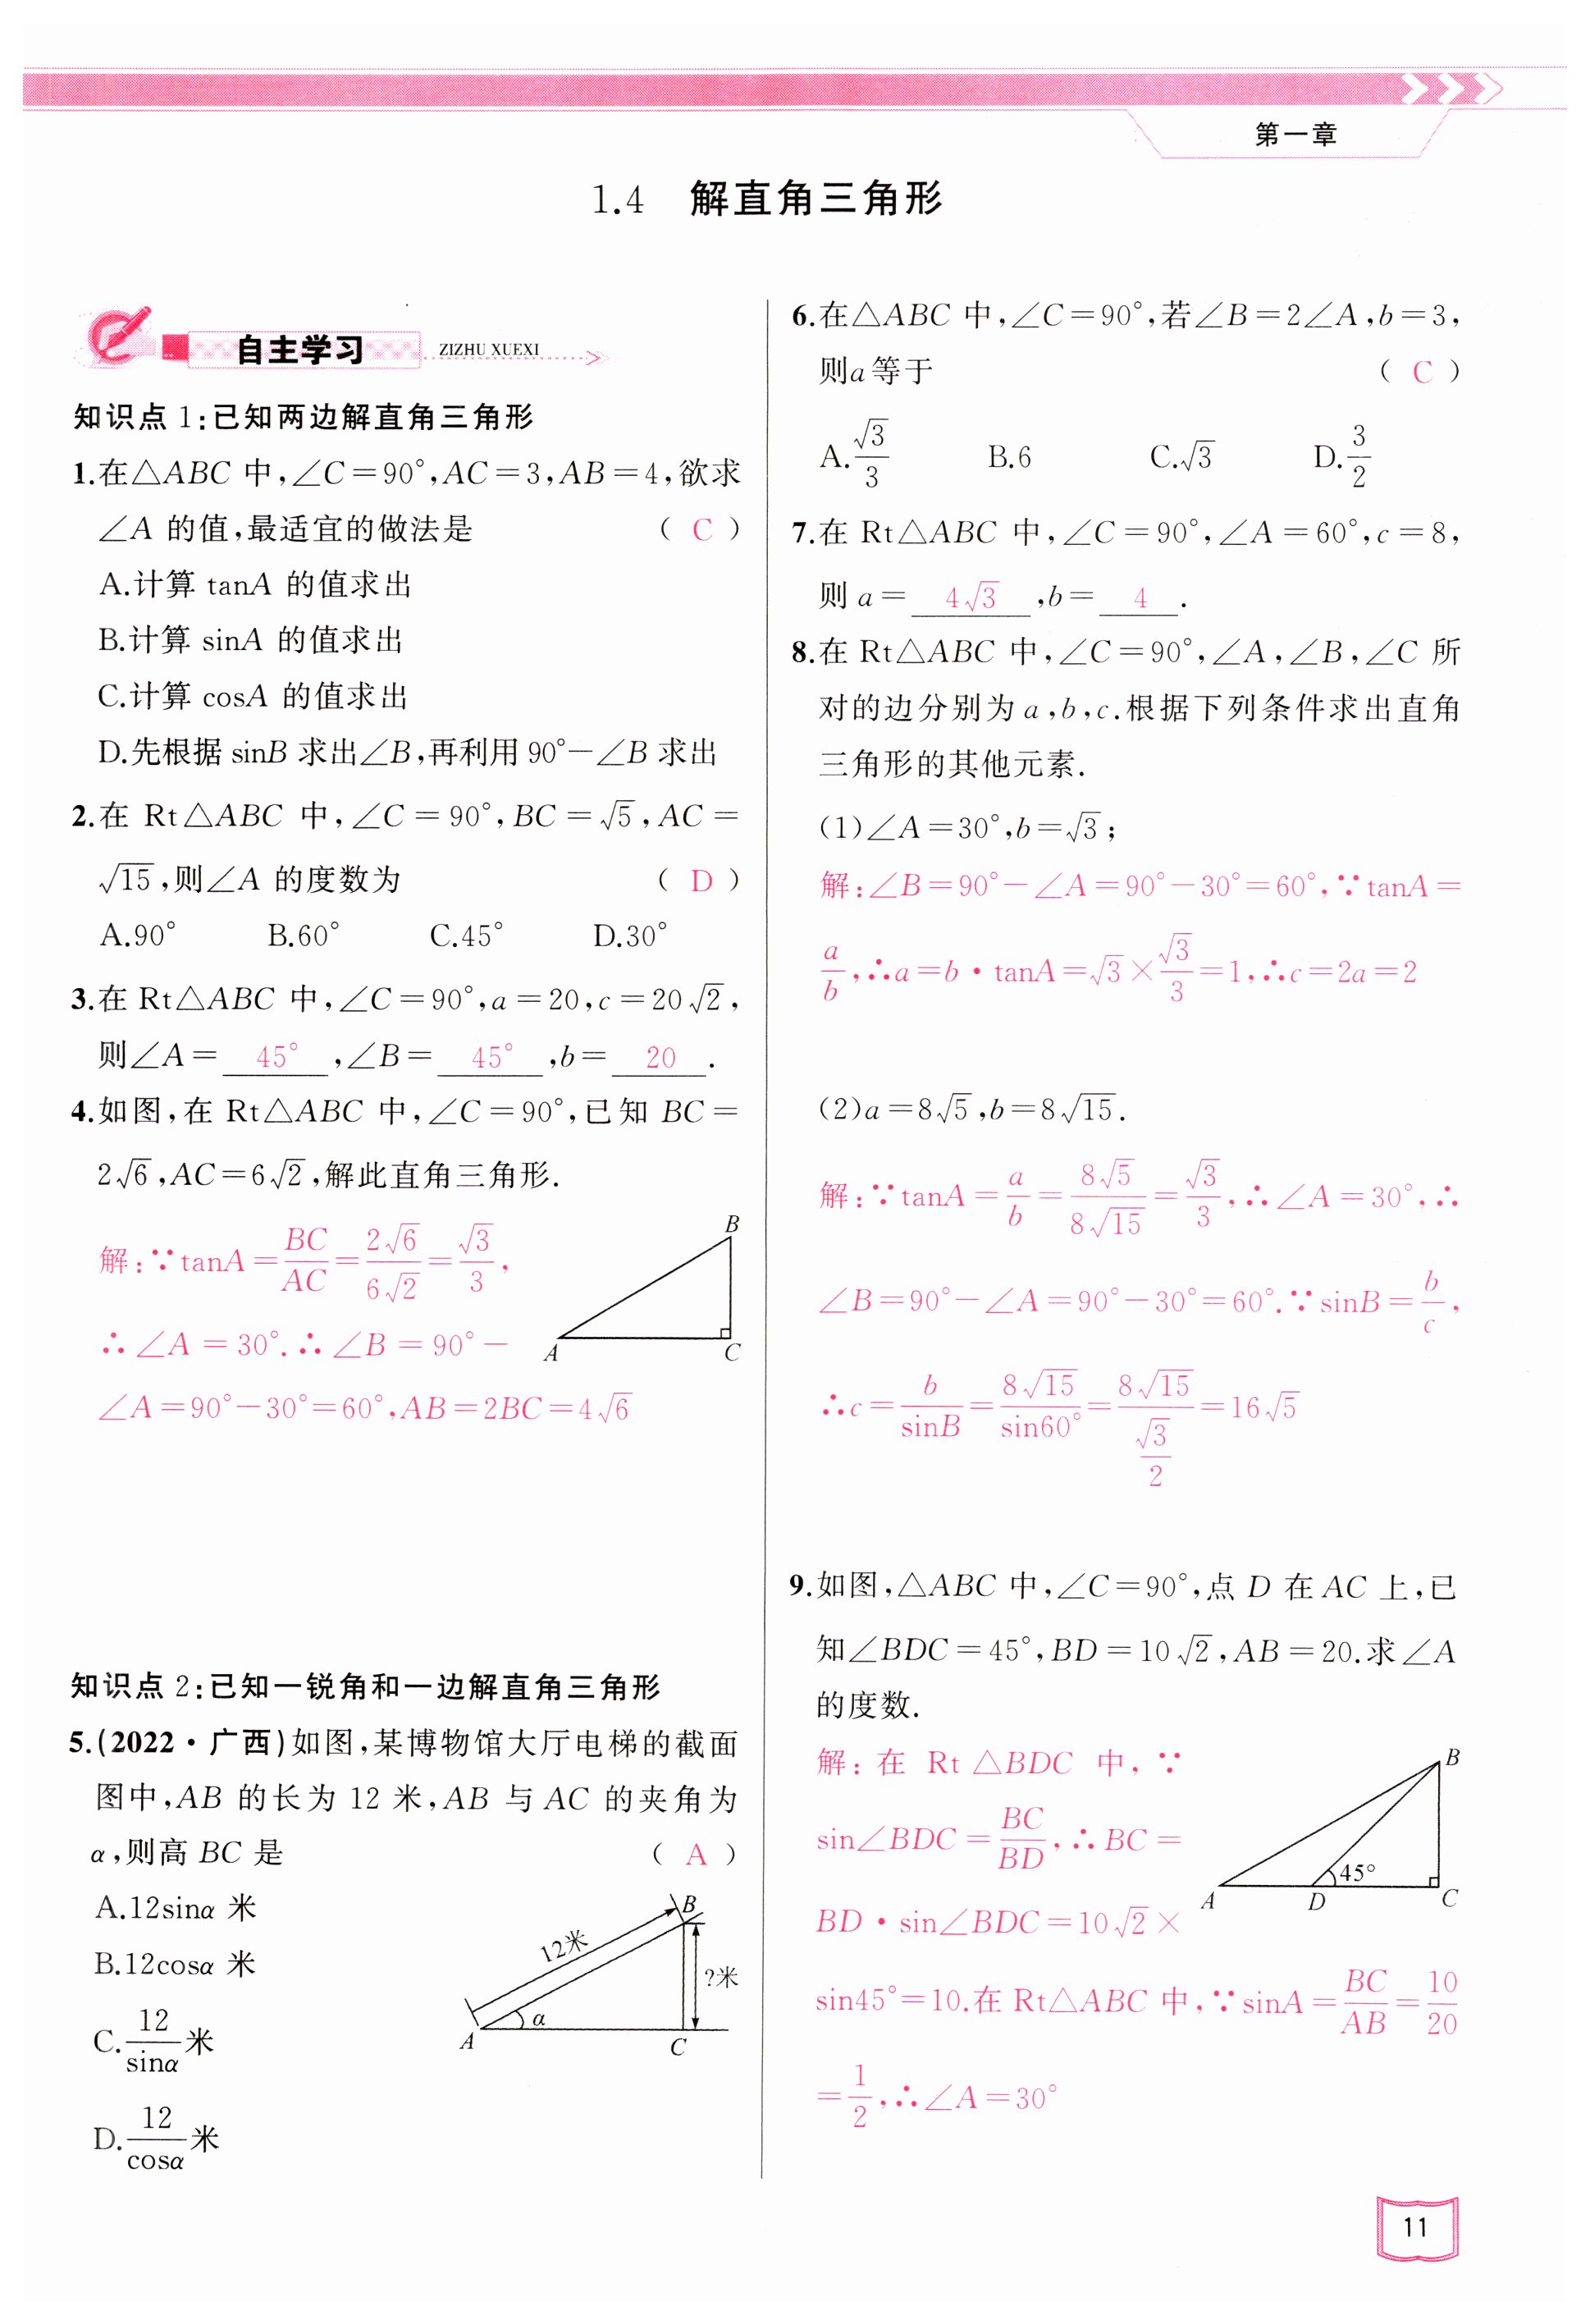 第一章
1.4 解直角三角形
自主学习 ZIZHU XUEXI
知识点 1:已知两边解直角三角形
1.在△ABC 中,∠C=90°,AC=3,AB=4,欲求
∠A 的值,最适宜的做法是 ( C )
A.计算 tanA 的值求出
B.计算 sinA 的值求出
C.计算 cosA 的值求出
D.先根据 sinB 求出∠B,再利用 90°-∠B 求出
2.在 Rt△ABC 中,∠C=90°,BC=√5,AC=
√15,则∠A 的度数为 ( D )
A.90° B.60° C.45° D.30°
3.在 Rt△ABC 中,∠C=90°,a=20,c=20√2,
则∠A= 45° ,∠B= 45° ,b= 20 .
4.如图,在 Rt△ABC 中,∠C=90°,已知 BC=
2√6,AC=6√2,解此直角三角形.
解:∵tanA=BC/AC=2√6/6√2=√3/3,
∴∠A=30°.∴∠B=90°-
∠A=90°-30°=60°,AB=2BC=4√6
B
A
C
知识点 2:已知一锐角和一边解直角三角形
5.(2022·广西)如图,某博物馆大厅电梯的截面
图中,AB 的长为 12 米,AB 与 AC 的夹角为
α,则高 BC 是 ( A )
A.12sinα 米
B.12cosα 米
C.12/sinα 米
D.12/cosα 米
B
12米
?米
α
A
C
6.在△ABC 中,∠C=90°,若∠B=2∠A,b=3,
则a等于 ( C )
A.√3/3 B.6 C.√3 D.3/2
7.在 Rt△ABC 中,∠C=90°,∠A=60°,c=8,
则 a= 4√3 ,b= 4 .
8.在 Rt△ABC 中,∠C=90°,∠A,∠B,∠C 所
对的边分别为 a,b,c.根据下列条件求出直角
三角形的其他元素.
(1)∠A=30°,b=√3;
解:∠B=90°-∠A=90°-30°=60°,∵tanA=
a/b,∴a=b·tanA=√3×√3/3=1,∴c=2a=2
(2)a=8√5,b=8√15.
解:∵tanA=a/b=8√5/8√15=√3/3,∴∠A=30°,∴
∠B=90°-∠A=90°-30°=60°.∵sinB=b/c,
∴c=b/sinB=8√15/sin60°=8√15/(√3/2)=16√5
9.如图,△ABC 中,∠C=90°,点 D 在 AC 上,已
知∠BDC=45°,BD=10√2,AB=20.求∠A
的度数.
解:在 Rt△BDC 中,∵
sin∠BDC=BC/BD,∴BC=
BD·sin∠BDC=10√2×
sin45°=10.在 Rt△ABC 中,∵sinA=BC/AB=10/20
=1/2,∴∠A=30°
B
45°
A
D
C
11